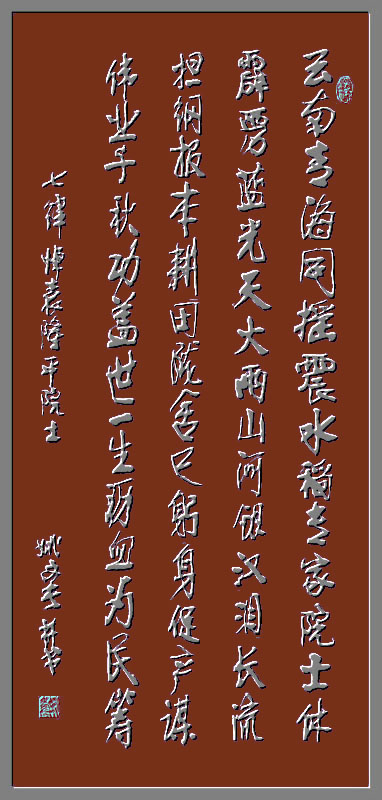 云南青海同摇震水稻专家院士休
霹雳蓝光天大雨山河银汉泪长流
担纲报本耕田陇舍己躬身促产谋
伟业千秋功盖世一生沥血为民筹
七律悼袁隆平院士
姚文 并书